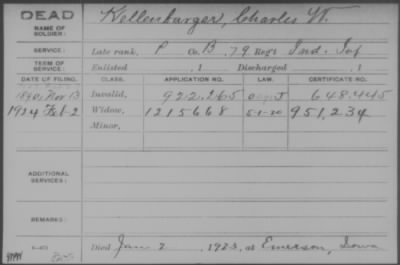 DEAD
NAME OF SOLDIER: Kellenbarger, Charles W.
SERVICE: Late rank, P Co. B, 79 Reg't Ind. Inf
TERM OF SERVICE: Enlisted , 1 Discharged , 1
DATE OF FILING. CLASS. APPLICATION NO. LAW. CERTIFICATE NO.
1890, Nov 13 Invalid, 922.265 J 648.445
1924 Feb 2 Widow, 1215668 5-1-20 951,234
Minor,
ADDITIONAL SERVICES:
REMARKS:
Died Jan 2 , 1923, at Emerson, Iowa